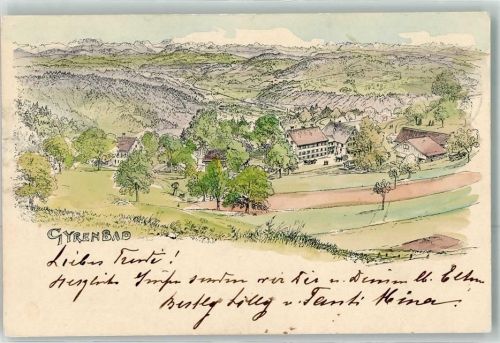 GYRENBAD
Liebes Trudi!
Herzliche Grüße senden wir Dir u. Deinen lb. Eltern
Lilly u. Tanti Mina!